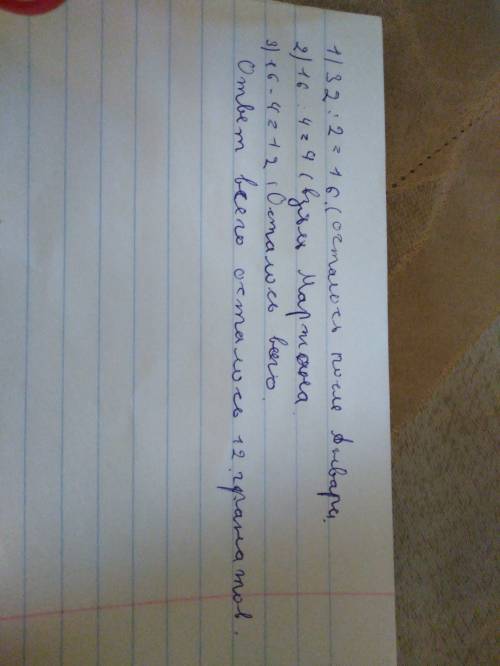 1) 32 : 2 = 16 (осталось после Анвара.
2) 16 : 4 = 4 (взяла Маржана.
3) 16 - 4 = 12 (Осталось всего.
Ответ всего осталось 12 гранатов.